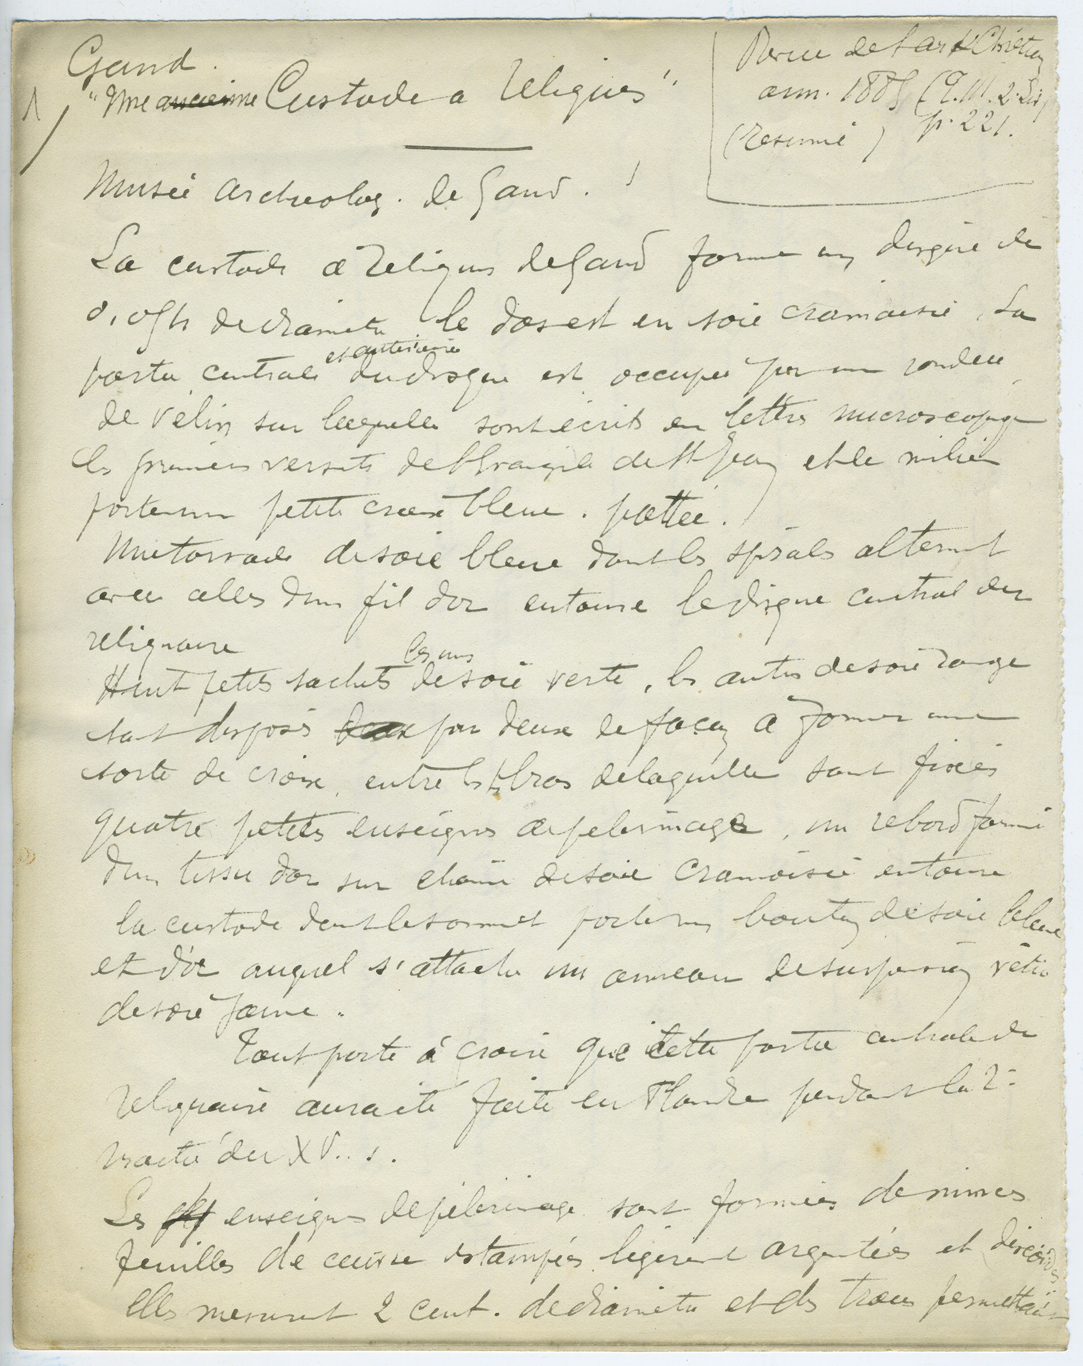 Gand.
"Une ancienne Custode a reliques"
Revue de l'art Chrétien
ann. 188 (T. III. 2e
(résumé) p. 221.
Musée Archeolog. de Gand.
La custode a reliques de Gand forme un disque de
de diametre. le dos est en soie cramoisie. La
partie centrale et anterieure du disque est occupée par un rondeau
de vélin sur lequelle sont écrits en lettres microscopiq
les premiers versets de l'Evangile de St Jean et le milieu
porte une petite croix bleue. pattée.
Une torsade de soie bleue dont les spirales alternent
avec celles d'un fil d'or entoure le disque central du
reliquaire
Huit petits sachets les uns de soie verte, les autres de soie rouge
sont disposés par deux de façon a former une
sorte de croix, entre les bras de laquelle sont fixées
quatre petites enseignes de pelerinage, un rebord formé
d'un tissu d'or sur chaine de soie cramoisie entoure
la custode dont le sommet porte un bouton de soie bleue
et d'or auquel s'attache un anneau de suspension vétu
de soie jaune.
Tout porte à croire que cette partie centrale du
reliquaire aura été faite en Flandre pendant la 2e
moitié du XVe s.
Les enseignes de pélerinage sont formées de minces
feuilles de cuivre estampées légèrement argentées et discoïdes
elles mesurent 2 cent. de diametre et des trous permettaient